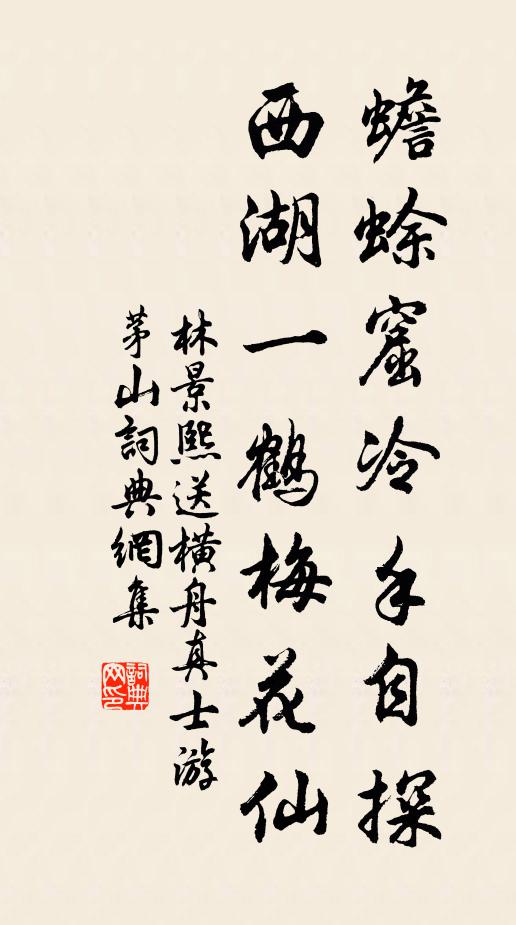 蟾蜍窟冷手自探
西湖一鶴梅花仙
林景熙送橫舟真士游
茅山詞典網集
詞典
网印